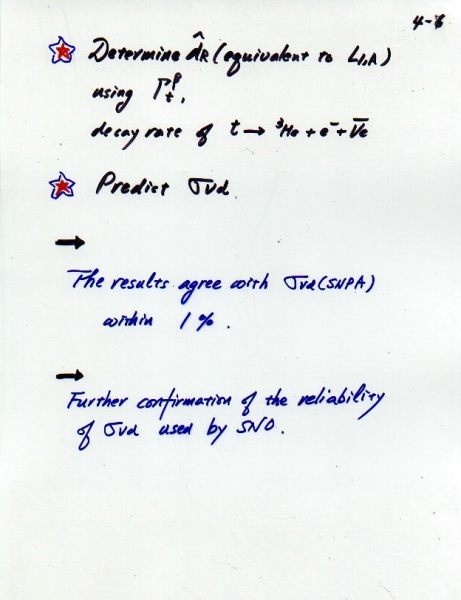 4-6
Determine d̂R (equivalent to L1,A)
using Γtβ,
decay rate of t → ³He + e⁻ + ν̄e
Predict σνd
→
The results agree with σνd (SNPA)
within 1 % .
→
Further confirmation of the reliability
of σνd used by SNO.